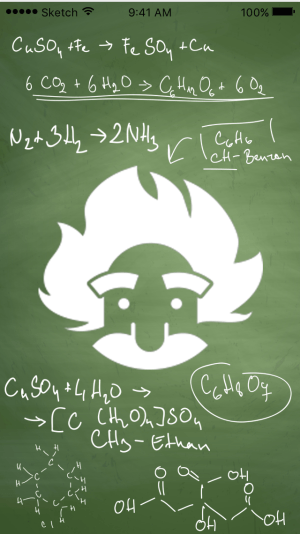 Sketch 9:41 AM 100%
CuSO4 + Fe → FeSO4 + Cu
6 CO2 + 6 H2O → C6H12O6 + 6 O2
N2 + 3H2 → 2NH3
C6H6
CH - Benzan
CuSO4 + 4 H2O →
C6H8O7
→ [C (H2O)4]SO4
CH3 - Ethan
H H
H C H
H C C H
C C H
H C H
Cl H
O O OH
OH O
OH OH